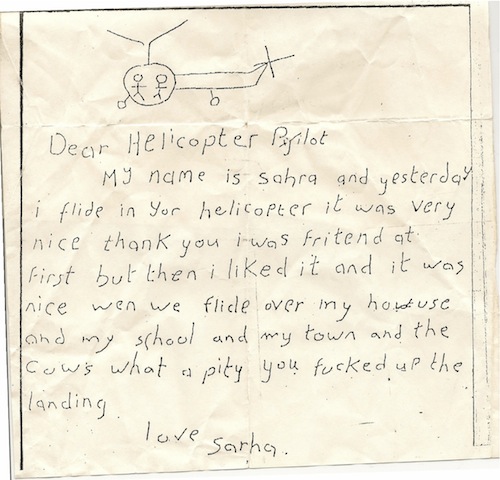 Dear Helicopter Pilot
My name is sahra and yesterday
i flide in Yor helicopter it was very
nice thank you i was fritend at
first but then i liked it and it was
nice wen we flide over my howuse
and my school and my town and the
cows what a pity you fucked up the
landing
love sarha.